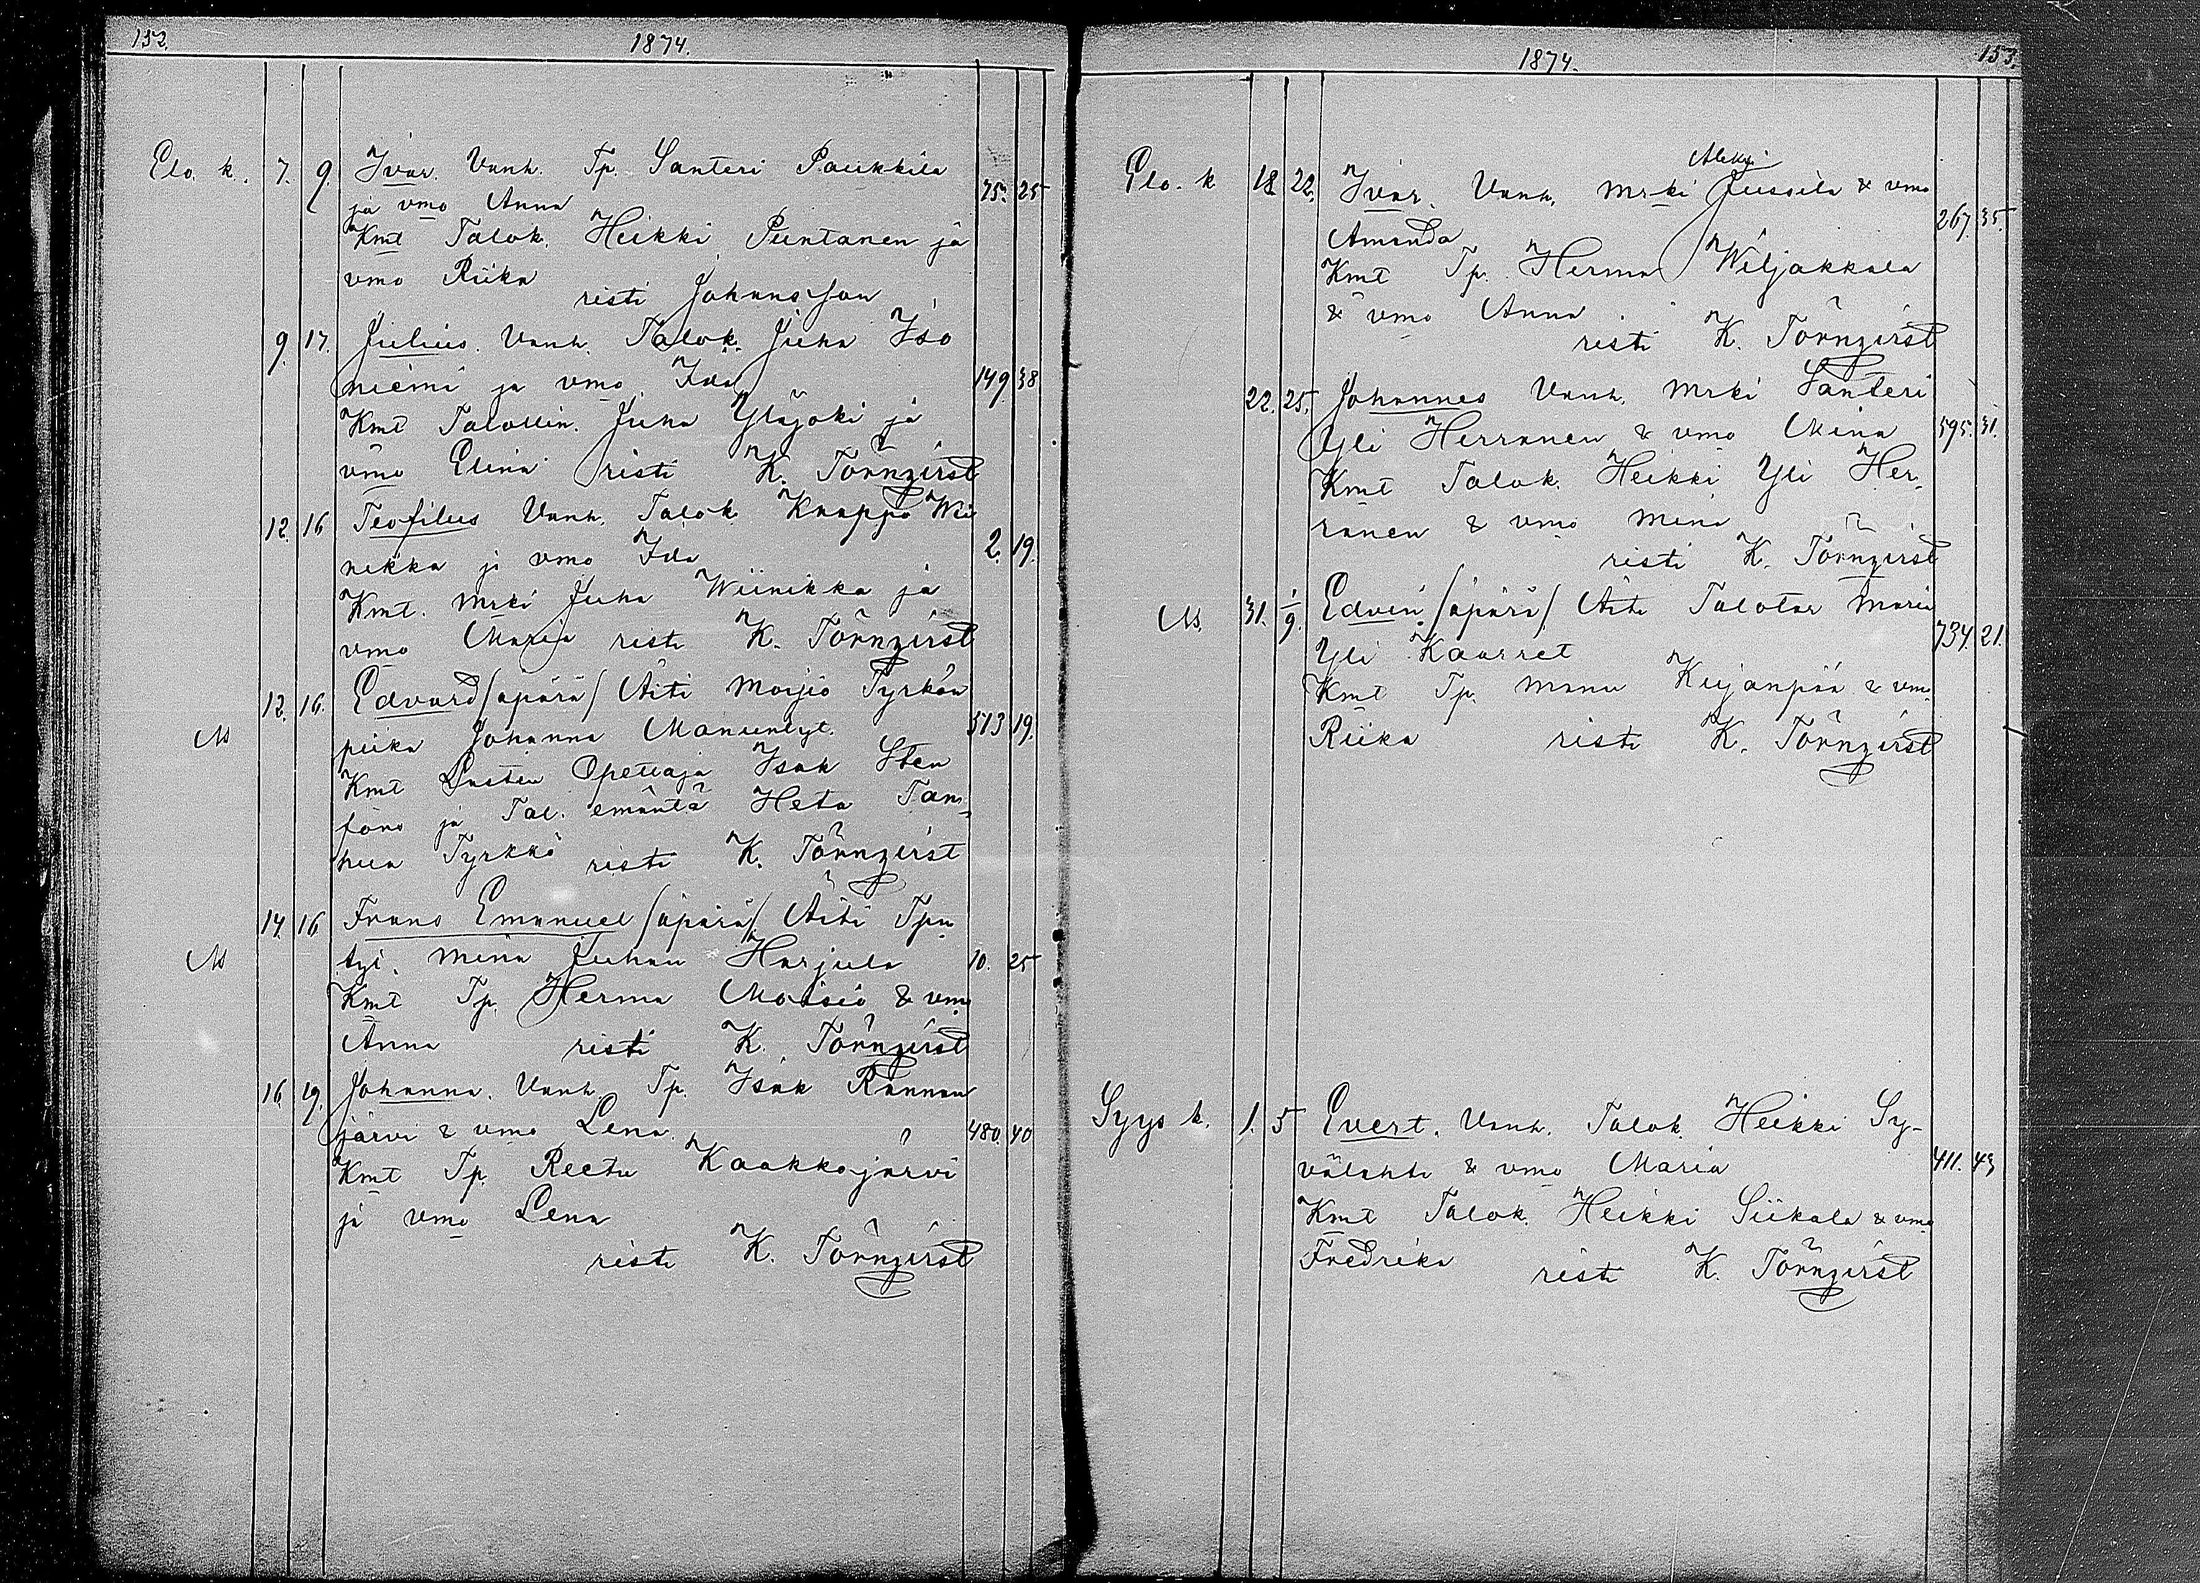 152. 1874.
Elo. k. 7. 9. Ivar. Vanh. Tp. Santeri Paukkila
ja vmo Anna 75. 25
Kmt Talok. Heikki Puntanen ja
vmo Riika
risti Johansson
9. 17. Julius. Vanh. Talok. Juha Iso
niemi ja vmo Ida 149 38
Kmt Talollin. Juha Yläjoki ja
vmo Elina risti K. Törnqvist
12. 16 Teofilus Vanh. Talok. Knappo Wii
nikka ja vmo Ida 2. 19.
Kmt. Mrki Juha Wiinikka ja
vmo Maria risti K. Törnqvist
12. 16. Edvard /äpärä/ Äiti Moijio Tyrkön
Ms piika Johanna Manuntyt. 513 19.
Kmt Lasten Opettaja Isak Sten
fors ja Tal. emäntä Heta Tan
hua Tyrkkö risti K. Törnqvist
14. 16 Frans Emanuel /äpärä/ Äiti Tpn
Ms tyt. Mina Juhan Harjula 10. 25
Kmt Tp. Herma Moisio & vmo
Anna risti K. Törnqvist
16. 19. Johanna. Vanh. Tp. Isak Rannan
järvi & vmo Lena 480. 40
Kmt Tp. Reetu Kaakkojärvi
ja vmo Lena
risti K. Törnqvist
1874. 153.
Aleksi
Elo. k 18 22. Ivar. Vanh. Mrki Jussila & vmo
Amanda 267. 35.
Kmt Tp. Herma Wiljakkala
& vmo Anna
risti K. Törnqvist
22. 25. Johannes Vanh. Mrki Santeri
Yli Herranen & vmo Mina 595. 31.
Kmt Talok. Heikki Yli Her-
ranen & vmo Mina
risti K. Törnqvist
Ms. 31. 1/9. Edvin /äpärä/ Äiti Talotar Maria
Yli Kaarret 734. 21.
Kmt Tp. Manu Kujanpää & vmo
Riika risti K. Törnqvist
Syys k. 1. 5 Evert. Vanh. Talok. Heikki Sy-
välahti & vmo Maria 411. 43
Kmt Talok. Heikki Siikala & vmo
Fredrika risti K. Törnqvist